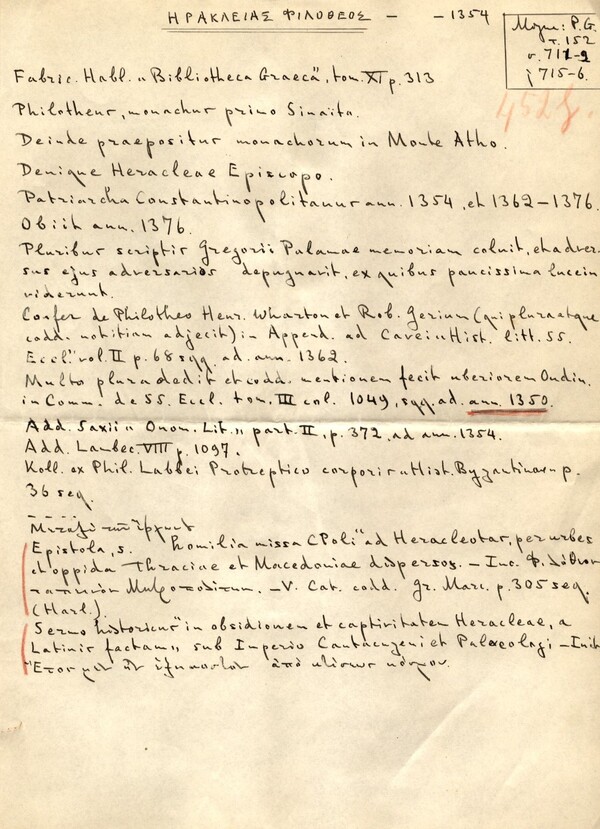 ΗΡΑΚΛΕΙΑΣ ΦΙΛΟΘΕΟΣ — - 1354
Migne: P.G.
τ. 152
σ. 711-2
715-6.
452
Fabric. Harl. „Bibliotheca Graeca", tom. XI p. 313
Philotheus, monachus primo Sinaita.
Deinde praepositus monachorum in Monte Atho.
Denique Heracleae Episcopo.
Patriarcha Constantinopolitanus ann. 1354, et 1362–1376.
Obiit ann. 1376.
Pluribus scriptis Gregorii Palamae memoriam coluit, et adver-
sus ejus adversarios depugnavit, ex quibus paucissima lucem
viderunt.
Confer de Philotheo Henr. Wharton et Rob. Gerium (qui plura atque
codd. notitiam adjecit) in Append. ad Cavei „Hist. litt. SS.
Eccl." vol. II p. 68 sqq. ad. ann. 1362.
Multo plura dedit et codd. mentionem fecit uberiorem Oudin.
in Comm. de SS. Eccl. tom. III col. 1049, sqq. ad. ann. 1350.
Add. Saxii „Onom. Lit.„ part. II, p. 372, ad ann. 1354.
Add. Lambec. VIII p. 1097.
Koll. ex Phil. Labbei Protreptico corporis „Hist. Byzantinae„ p.
36 seq.
Epistola, s. homilia missa CPoli" ad Heracleotas, per urbes
et oppida Thraciae et Macedoniae dispersos. – Inc.
– V. Cat. codd. gr. Marc. p. 305 seq.
(Harl.)
„Sermo historicus" in obsidionem et captivitatem Heracleae, a
Latinis factam„ sub Imperio Cantacuzeni et Palaeologi, – Init.